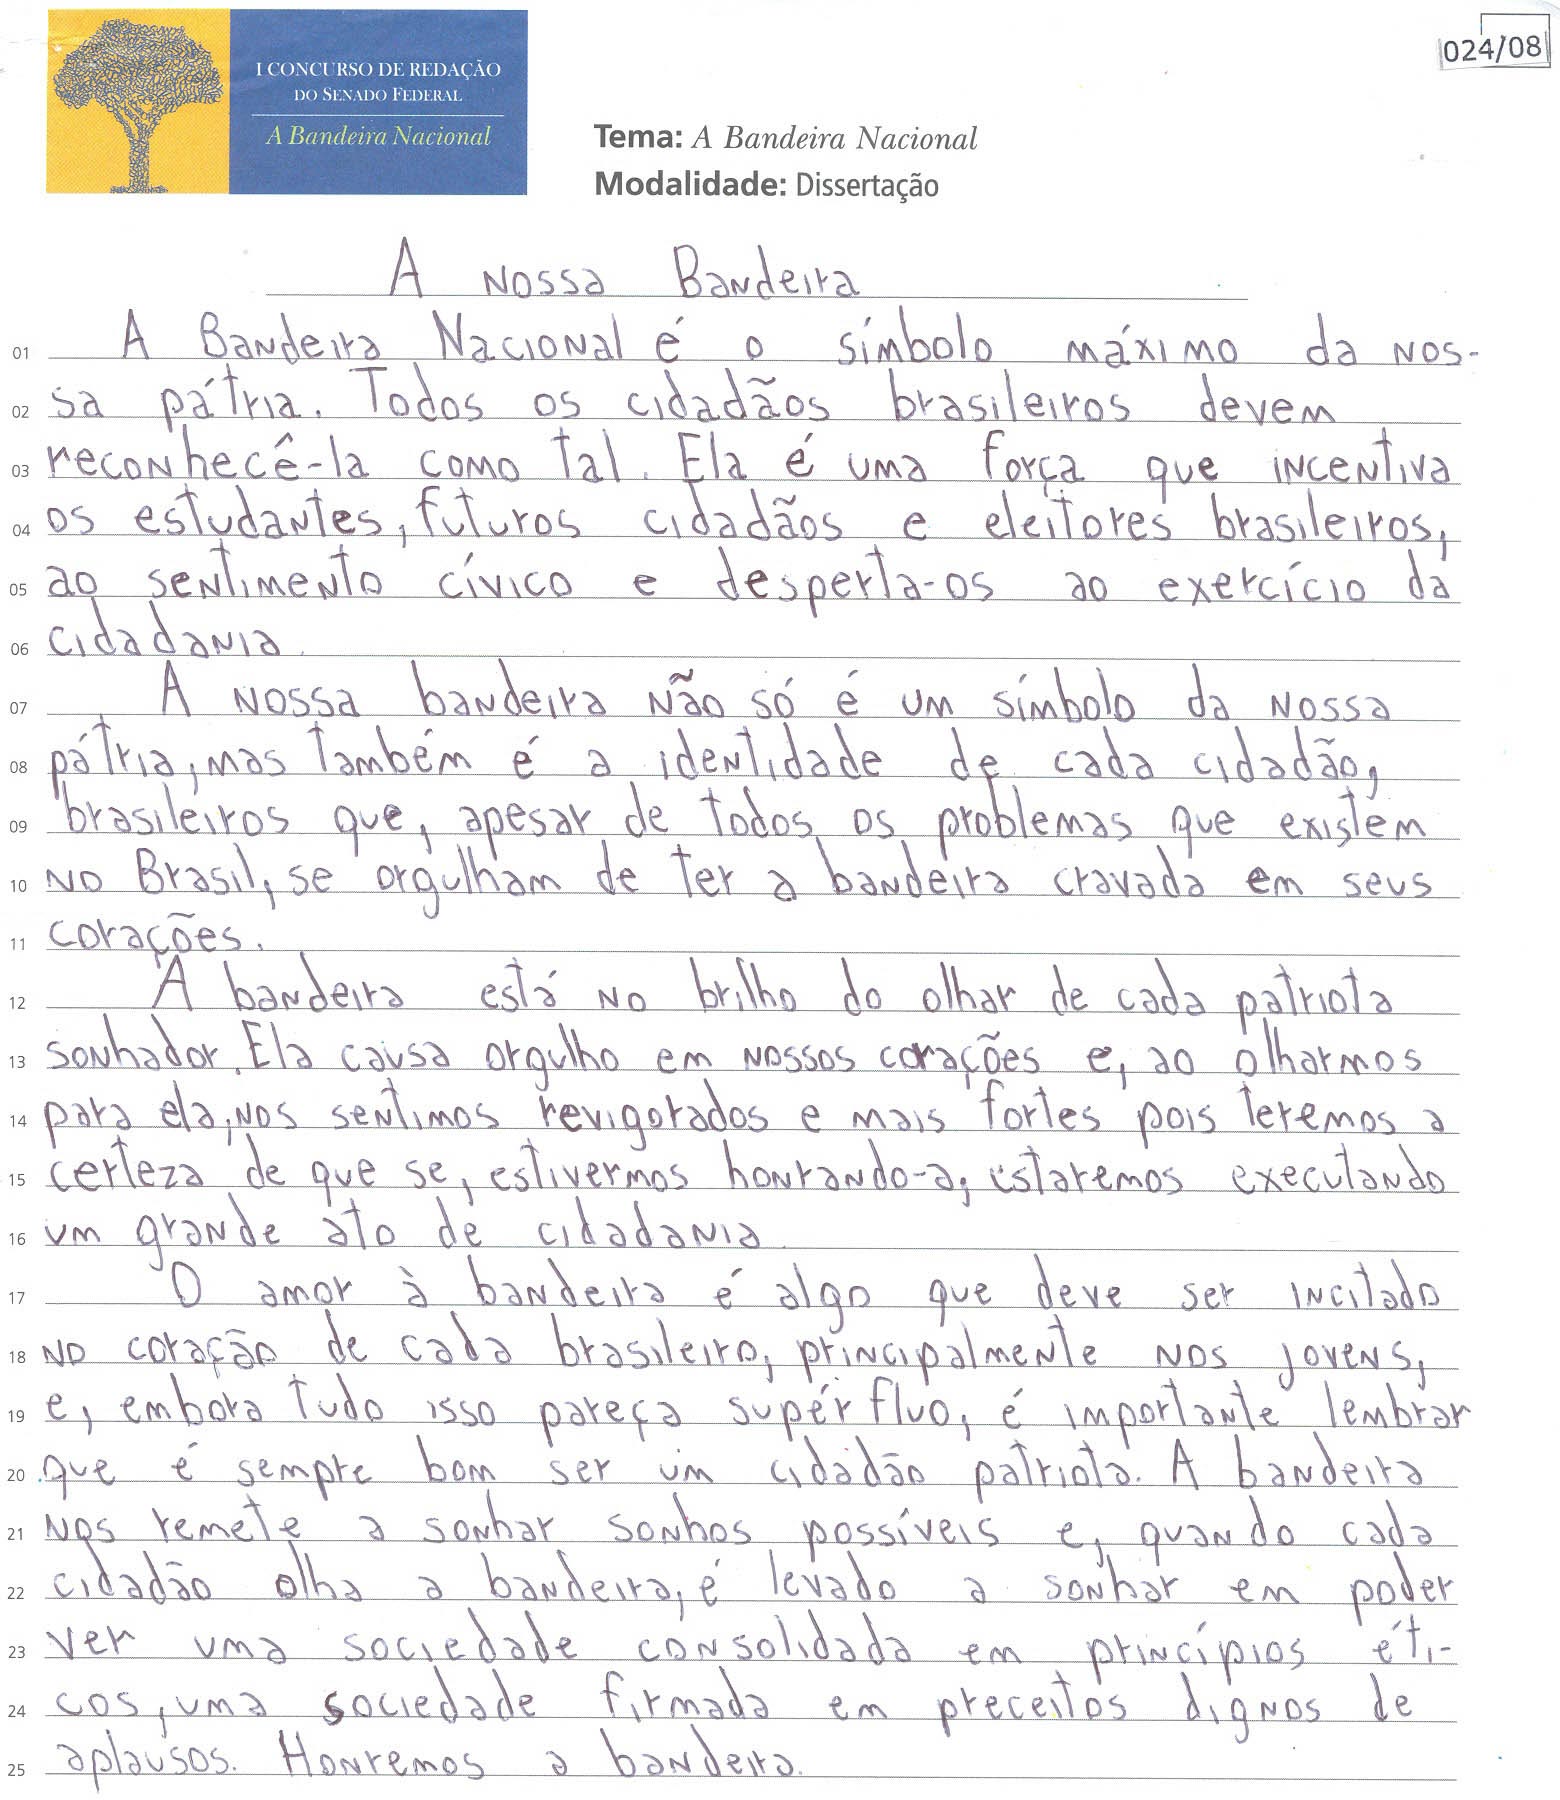 I CONCURSO DE REDAÇÃO
DO SENADO FEDERAL
A Bandeira Nacional
024/08
Tema: A Bandeira Nacional
Modalidade: Dissertação
A Nossa Bandeira
01 A Bandeira Nacional é o símbolo máximo da nos-
02 sa pátria. Todos os cidadãos brasileiros devem
03 reconhecê-la como tal. Ela é uma força que incentiva
04 os estudantes, futuros cidadãos e eleitores brasileiros,
05 ao sentimento cívico e desperta-os ao exercício da
06 cidadania.
07 A nossa bandeira não só é um símbolo da nossa
08 pátria, mas também é a identidade de cada cidadão,
09 brasileiros que, apesar de todos os problemas que existem
10 no Brasil, se orgulham de ter a bandeira cravada em seus
11 corações.
12 A bandeira está no brilho do olhar de cada patriota
13 sonhador. Ela causa orgulho em nossos corações e, ao olharmos
14 para ela, nos sentimos revigorados e mais fortes pois teremos a
15 certeza de que se, estivermos honrando-a, estaremos executando
16 um grande ato de cidadania.
17 O amor à bandeira é algo que deve ser incitado
18 no coração de cada brasileiro, principalmente nos jovens,
19 e, embora tudo isso pareça supérfluo, é importante lembrar
20 que é sempre bom ser um cidadão patriota. A bandeira
21 nos remete a sonhar sonhos possíveis e, quando cada
22 cidadão olha a bandeira, é levado a sonhar em poder
23 ver uma sociedade consolidada em princípios éti-
24 cos, uma sociedade firmada em preceitos dignos de
25 aplausos. Honremos a bandeira.